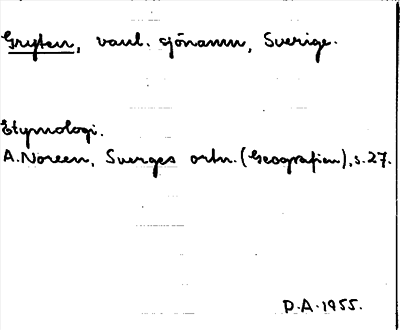 Gryten, vanl. sjönamn, Sverige.
Etymologi.
A. Noreen, Sverges ortn. (Geografien), s. 27.
D.A. 1955.